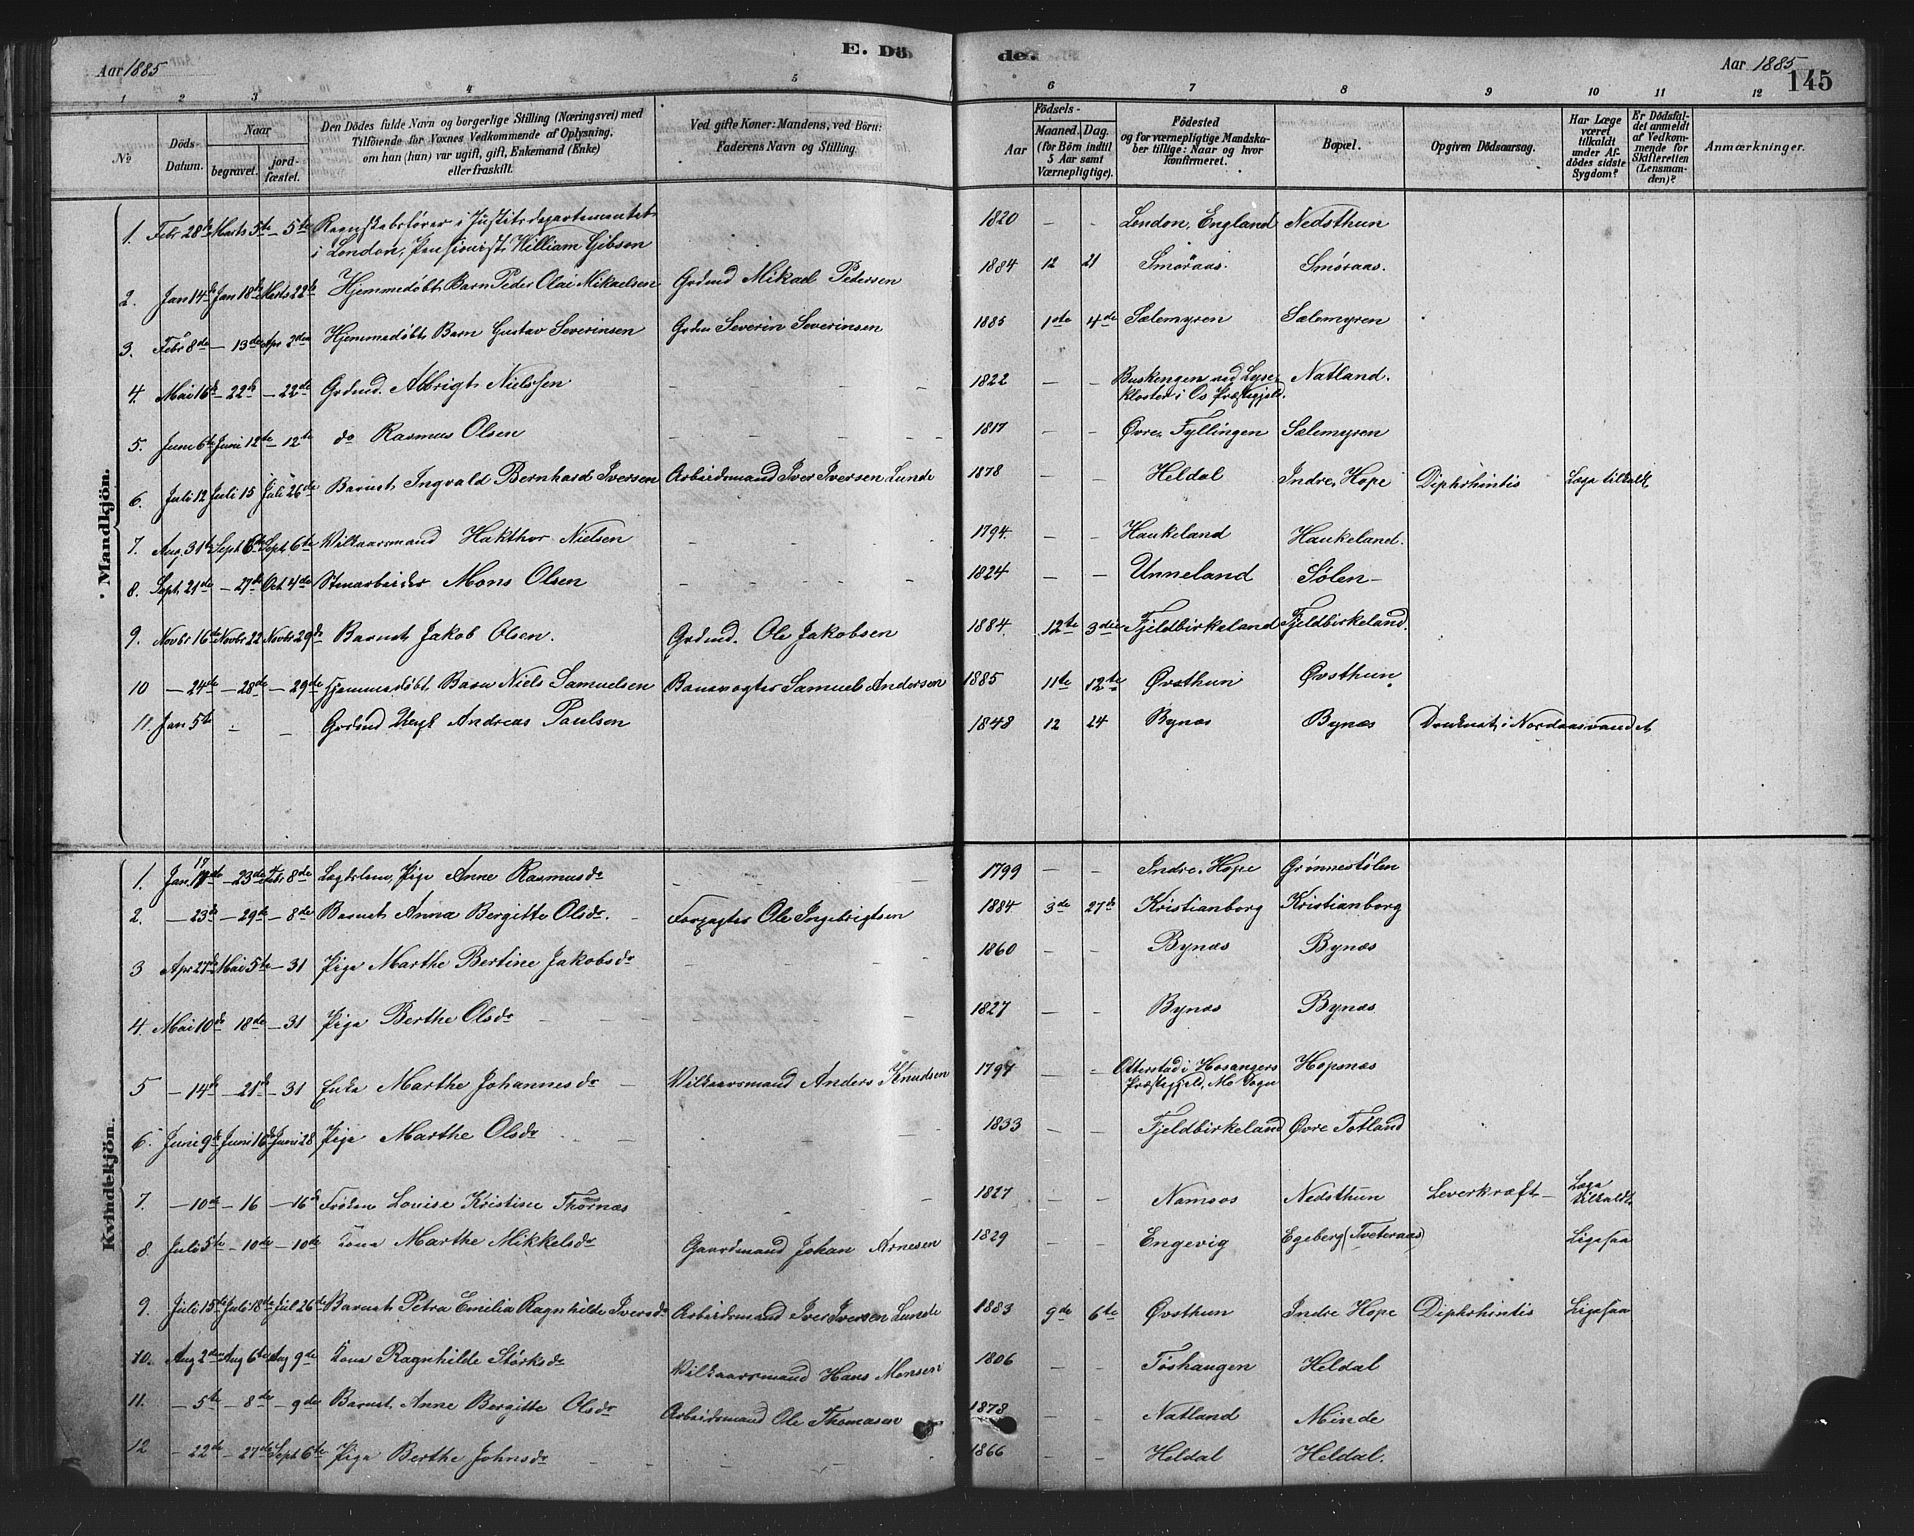 Aar 1885 E. Dö de. Aar 1885 145
1 2 3 4 5 6 7 8 9 10 11 12
No
Döds-Datum.
Naar begravet. jordfæstet.
Den Dödes fulde Navn og borgerlige Stilling (Næringsvei) med
Tilföiende for Voxnes Vedkommende af Oplysning,
om han (hun) var ugift, gift, Enkemand (Enke)
eller fraskilt.
Ved gifte Koner: Mandens, ved Börn:
Faderens Navn og Stilling.
Födsels-
Aar Maaned. Dag.
(for Börn indtil
5 Aar samt
Værnepligtige).
Födested
og for værnepligtige Mandska-
ber tillige: Naar og hvor
konfirmeret.
Bopæl.
Opgiven Dödsaarsag.
Har Læge
været
tilkaldt
under Af-
dödes sidste
Sygdom?
Er Dödsfal-
det anmeldt
af Vedkom-
mende for
Skifteretten
(Lensman-
den)?
Anmærkninger.
Mandkjön.
1. Febr 28de Marts 5te – 5te Regnskabsfører i Justitsdepartementet
i London, Pensionist William Gibson 1820 – – London, England Nedsthun
2. Jan 14de Jan 18de Marts 22de Hjemmedøbt Barn Peder Olai Mikaelsen Grdmd Mikael Pedersen 1884 12 21 Smøraas. Smøraas.
3. Febr 8de – 13de Apr 2den Hjemmedøbt Barn Gustav Severinsen Grdm Severin Severinsen 1885 1ste 4de Sælemyren Sælemyren
4. Mai 16de – 22de – 22de Grdmd. Albrigt Nielssen – – 1822 – – Buskengen ved Lyse-
kloster i Os Præstegjeld. Natland.
5. Juni 6te Juni 12te – 12te do Rasmus Olsen – – 1817 – – Øvre Fyllingen Sælemyren
6. Juli 12 Juli 15 Juli 26de Barnet Ingvald Bernhard Iversen Arbeidsmand Iver Iversen Lunde 1878 – – Heldal Indre Hope Diphthintis Læge tilkaldt
7. Aug. 31te Sept 6te Sept 6te Vilkaarsmand Hakthor Nielsen – – 1794 – – Haukeland Haukeland.
8. Sept. 21de – 27de Oct 4de Stenarbeider Mons Olsen – – 1824 – – Unneland Sølen –
9. Novbr 16de Novbr 22 Novbr 29de Barnet Jakob Olsen. Grdmd. Ole Jakobsen 1884 12te 3die Fjeldbirkeland Fjeldbirkeland.
10 – 24de – 28de – 29de Hjemmedøbt Barn Niels Samuelsen Banevogter Samuel Andersen 1885 11te 12te Øvsthun Øvsthun
11. Jan 5te – – Grdmd Andreas Paulsen 1848 12 24 Bynæs Bynæs Druknet i Nordaasvandet
Kvindekjön.
1. Jan. 17de – 23de Febr 8de Lægdslem, Pige Anne Rasmusdr – – 1799 – – Indre Hope Grønnestølen
2. – 23de – 29de – 8de Barnet Anna Bergitte Olsdr. – Forpagter Ole Ingebrigtsen 1884 3de 27de Kristianborg Kristianborg
3 Apr 27de Mai 5te – 31 Pige Marthe Bertine Jakobsdr – – 1860 – – Bynæs Bynæs
4. Mai 10de – 18de – 31 Pige Berthe Olsdr – – 1827 – – Bynæs Bynæs
5 – 14de – 21de – 31 Enke Marthe Johannesdr – Vilkaarsmand Anders Knudsen 1797 – – Otterstad i Hosangers
Præstegjeld, Mo Sogn Hopsnæs
6. Juni 9de Juni 16de Juni 28 Pige Marthe Olsdr – – 1833 – – Fjeldbirkeland Øvre Totland
7. – 10de – 16 – 16de Frøken Louise Kristine Thornæs – 1827 – – Namsos Nedsthun Leverkræft – Læge
tilkaldt
8. Juli 5te – 10de – 10de Kona Marthe Mikkelsdr Gaardmand Johan Arnesen 1829 – – Engevig Egeberg (Tveteraas) Ligesaa
9. Juli 15te Juli 18de Jul 26de Barnet Petra Emilia Ragnhilde Iversdr Arbeidsmand Iver Iversen Lunde 1883 9de 6te Øvsthun Indre Hope Diphthintis Ligesaa
10. Aug 2den Aug 6te Aug 9de Kona Ragnhilde Størksdr Vilkaarsmand Hans Monsen 1806 – – Tøshaugen Heldal
11. – 5te – 8de – 9de Barnet Anne Bergitte Olsdr Arbeidsmand Ole Thomasen 1878 – – Natland Minde
12 – 22de – 27de Sept 6te Pige Berthe Johnsdr – – 1866 – – Heldal Heldal.